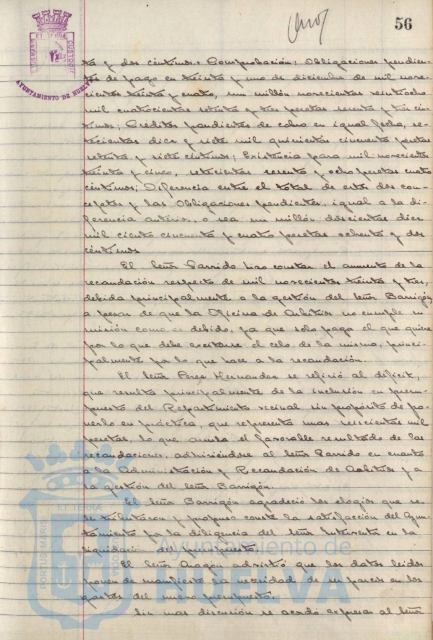 56
ta y dos céntimos. Comprobación: Obligaciones pendien-
tes de pago en treinta y uno de diciembre de mil nove-
cientos treinta y cuatro, un millón novecientos veintiocho
mil cuatrocientas setenta y tres pesetas sesenta y tres cén-
timos; Créditos pendientes de cobro en igual fecha, se-
tecientas diez y siete mil quinientas cincuenta pesetas
setenta y siete céntimos; Existencia para mil novecientos
treinta y cinco, setecientas sesenta y ocho pesetas cuatro
céntimos; Diferencia entre el total de estos dos con-
ceptos y las Obligaciones pendientes, igual a la di-
ferencia anterior, o sea un millón doscientas diez
mil ciento cincuenta y cuatro pesetas ochenta y dos
céntimos
El Señor Garrido hizo constar el aumento de la
recaudación respecto de mil novecientos treinta y tres,
debida principalmente a la gestión del Señor Barrigón
a pesar de que la Oficina de Arbitrios no cumple su
misión como es debido, ya que solo paga el que quiere
por lo que debe excitarse el celo de la misma, princi-
palmente por lo que hace a la recaudación.
El Señor Pérez Hernández se refirió al déficit,
que resulta principalmente de la inclusión en presu-
puesto del Repartimiento vecinal sin propósito de po-
nerlo en práctica, que representa mas seiscientas mil
pesetas, lo que anula el favorable resultado de las
recaudaciones, adhiriéndose al Señor Garrido en cuanto
a la Administración y Recaudación de Arbitrios y a
la gestión del Señor Barrigón.
El Señor Barrigón agradeció los elogios que se
le tributaron y propuso conste la satisfacción del Ayun-
tamiento por la diligencia del Señor Interventor en la
liquidación del presupuesto.
El Señor Aragón advirtió que los datos leidos
ponen de manifiesto la necesidad de ser parcos en los
gastos del nuevo presupuesto.
Sin mas discusión se acordó expresar al Señor
AYUNTAMIENTO DE HUELVA
Ayuntamiento de
HUELVA